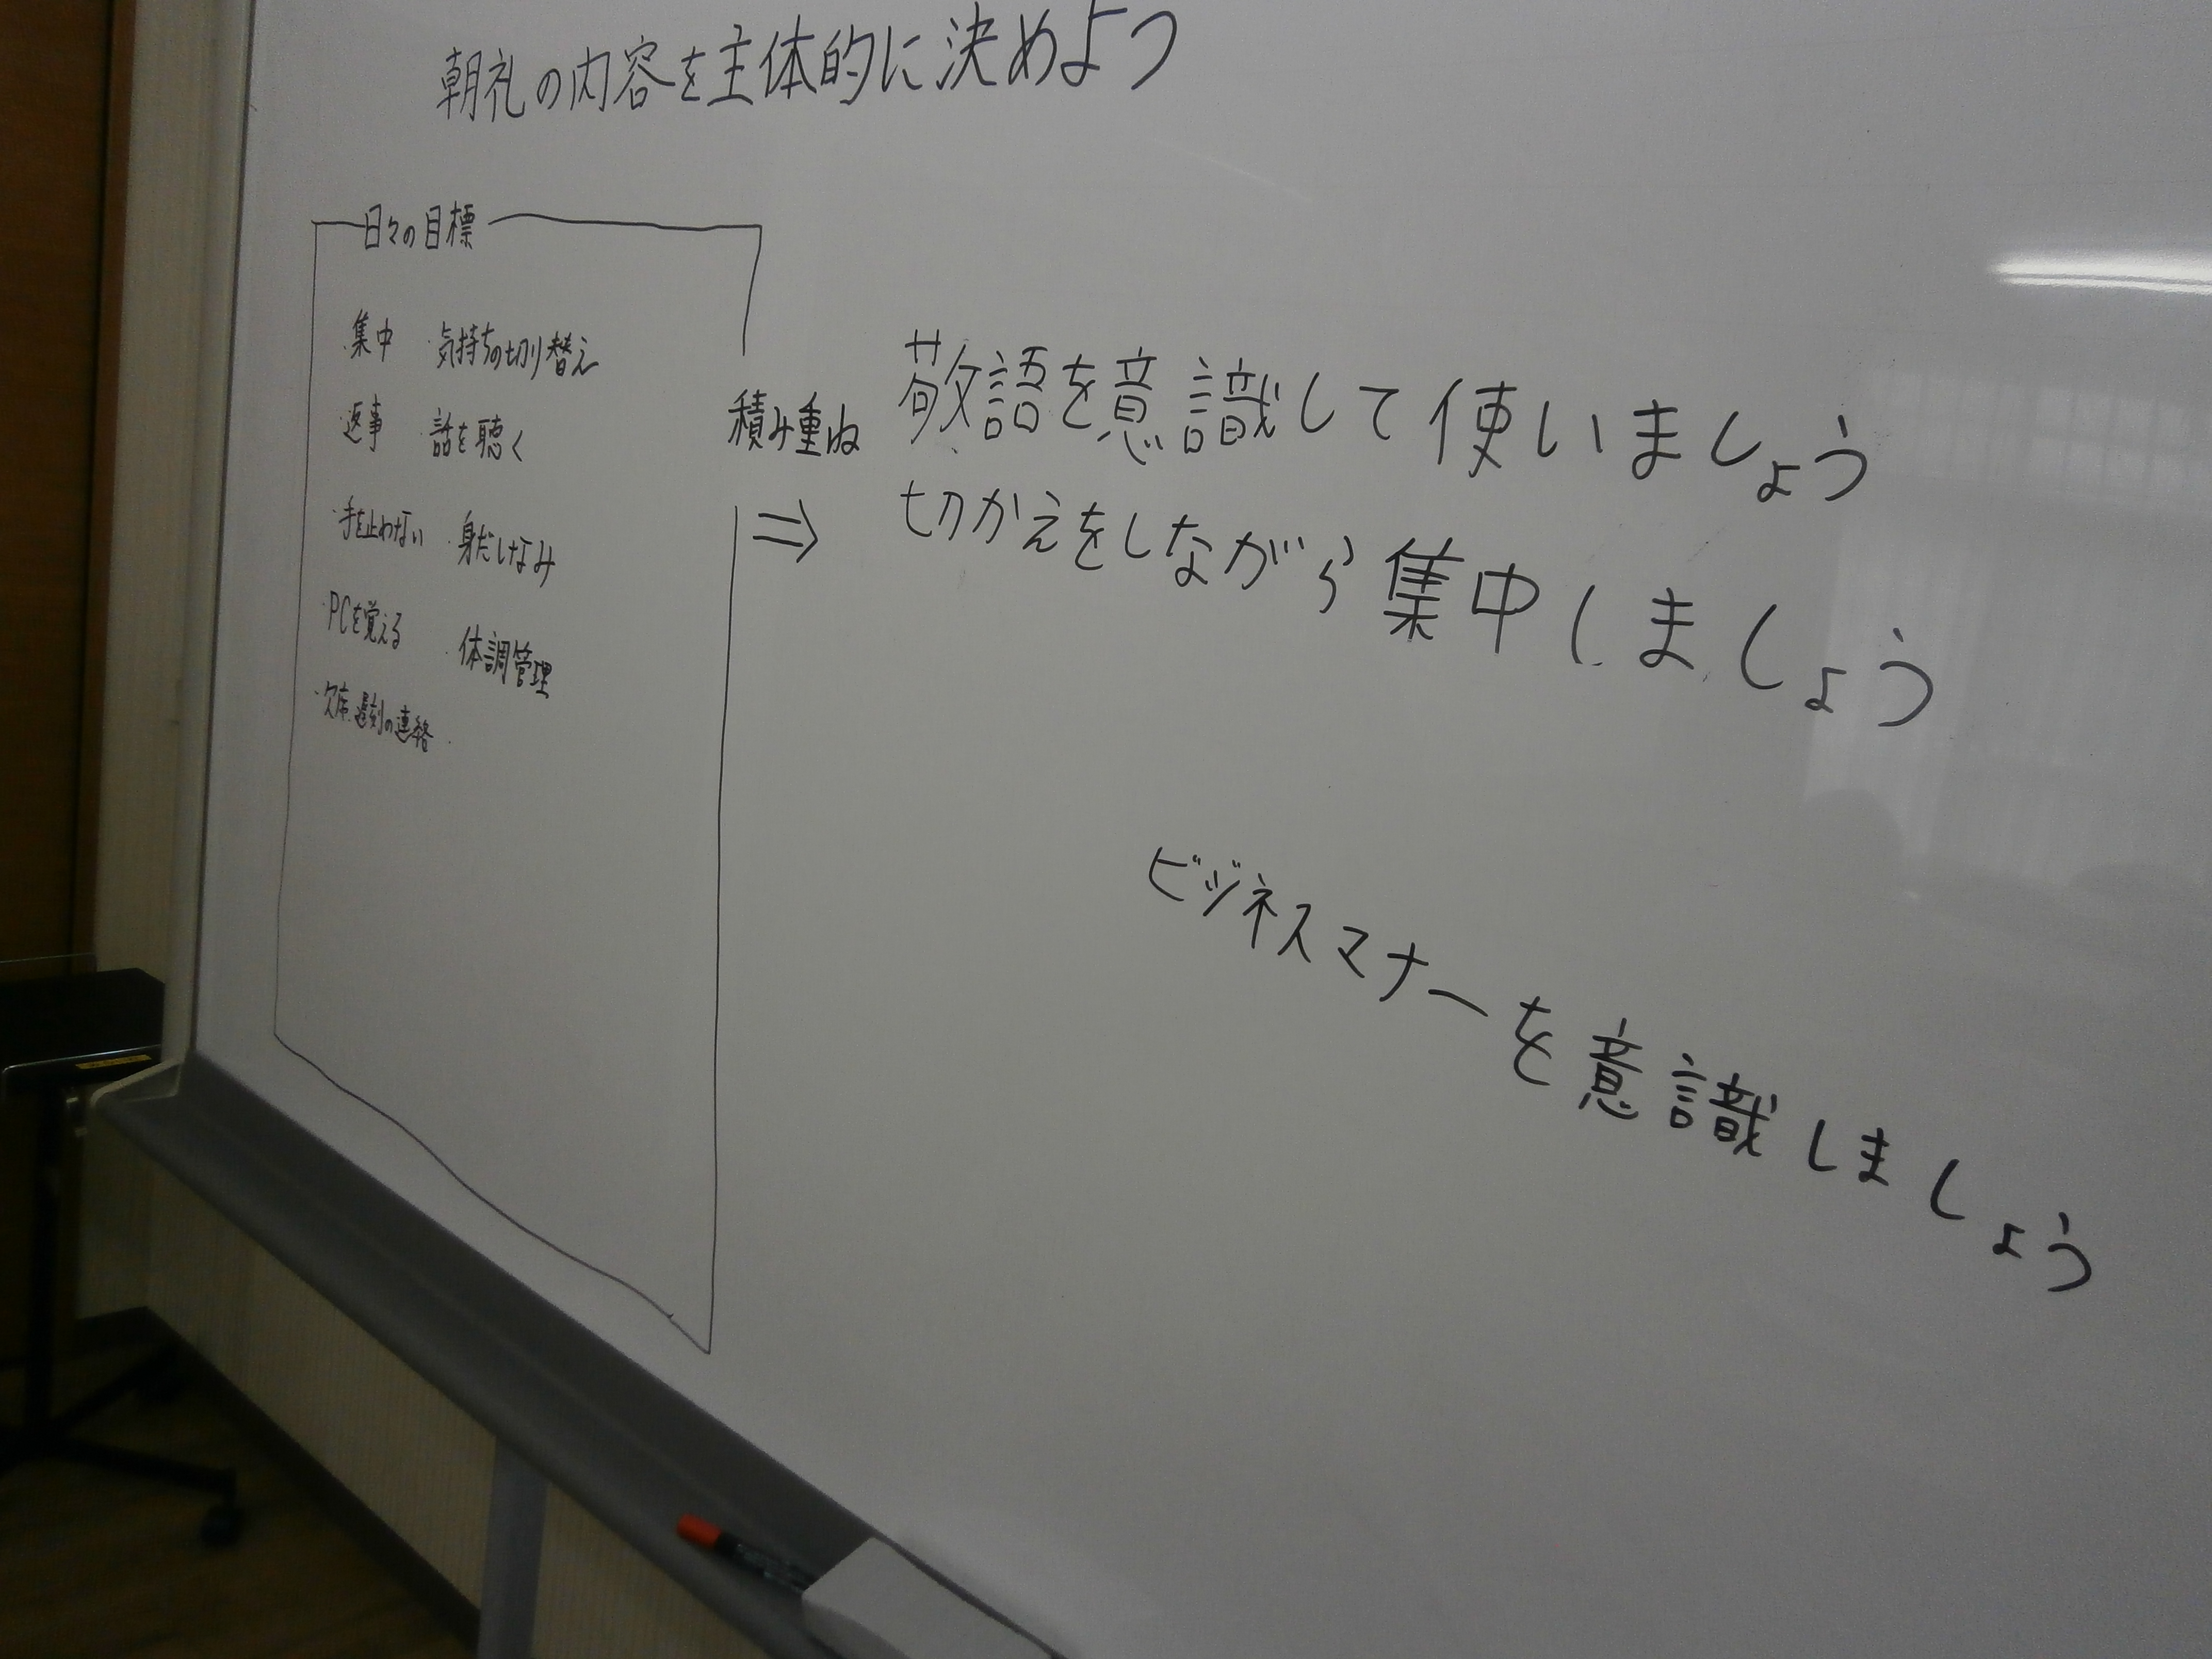 朝礼の内容を主体的に決めよう
日々の目標
・集中 ・気持ちの切り替え
・返事 ・話を聴く
・手を止めない ・身だしなみ
・PCを覚える ・体調管理
・欠席、遅刻の連絡
積み重ね
⇒
敬語を意識して使いましょう
切かえをしながら集中しましょう
ビジネスマナーを意識しましょう